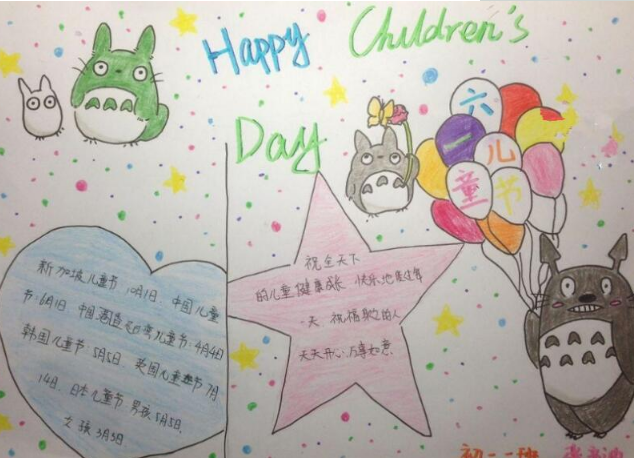 Happy Children's
Day
六
一儿
童节
祝全天下
的儿童健康成长 快乐地度过每
一天 祝福
天天开心,万事如意.
新加坡儿童节:10月1日 中国儿童
节:6月1日 中国 儿童节:4月4日
韩国儿童节:5月5日 英国儿童 节7月
14日. 日本儿童节 男孩:5月5日.
女孩3月3日.
初一 班